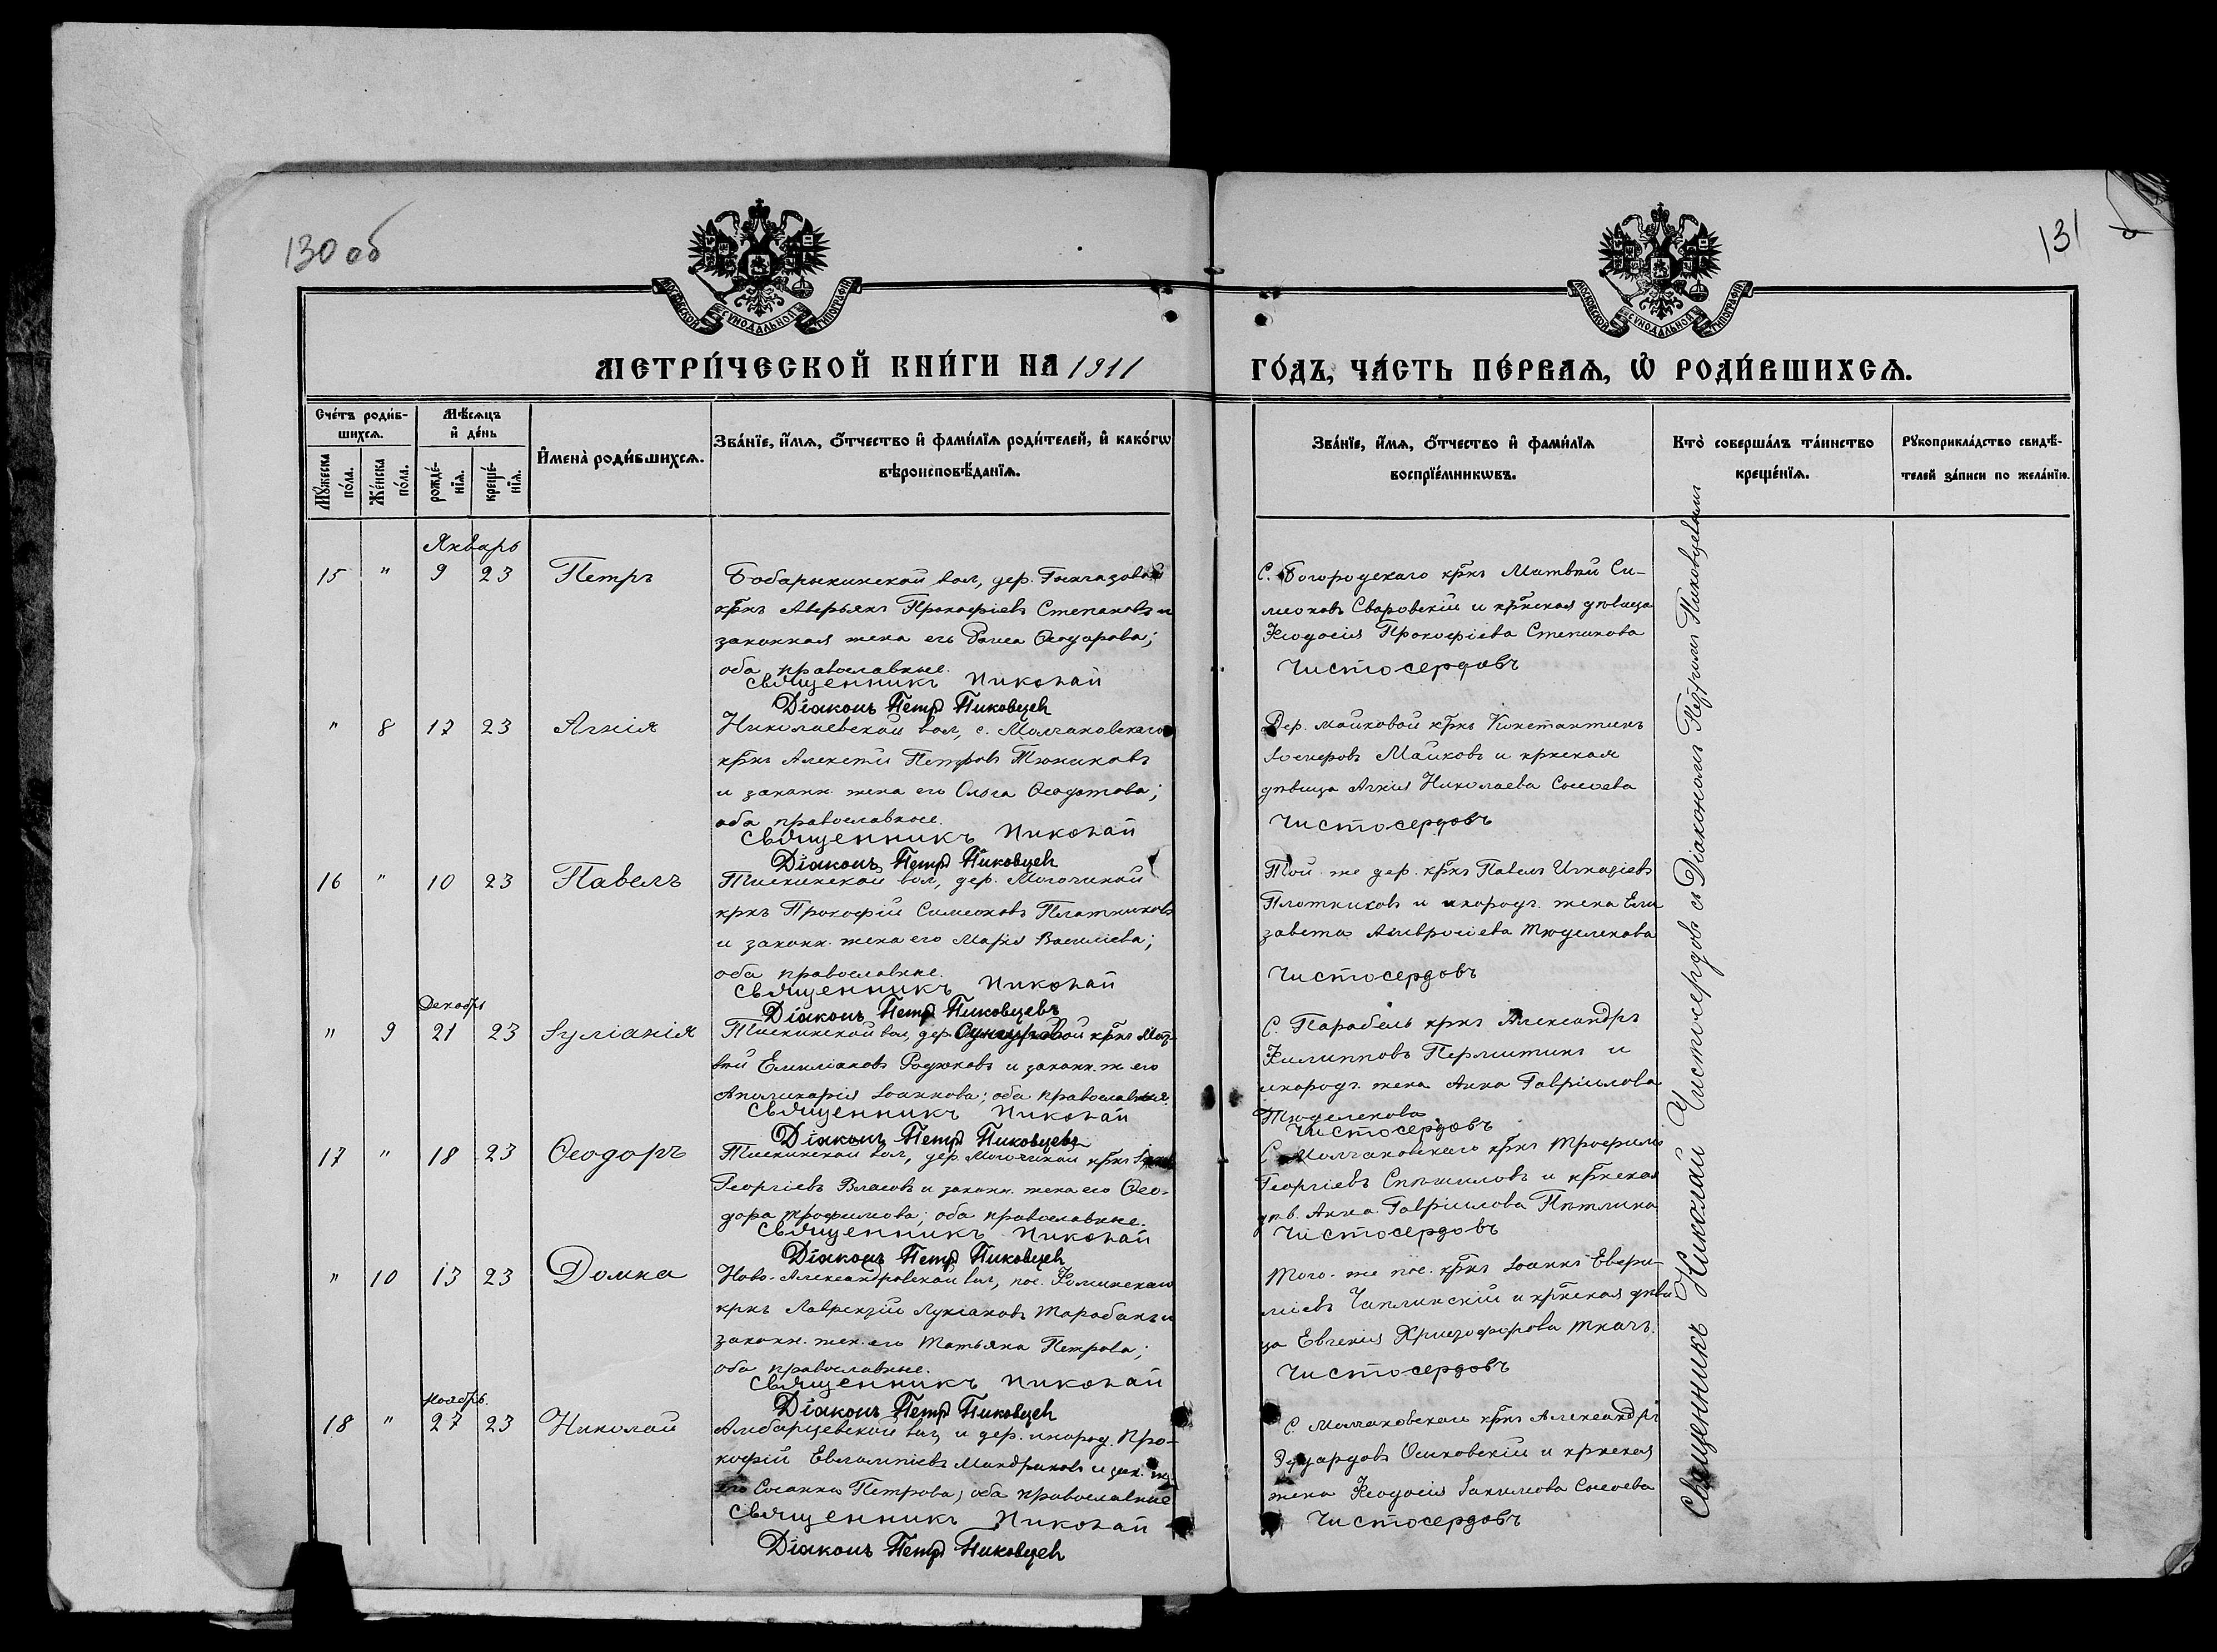 130 об
131
МОСКОВСКОЙ СѴНОДАЛЬНОЙ ТИПОГРАФІИ
МОСКОВСКОЙ СѴНОДАЛЬНОЙ ТИПОГРАФІИ
МЕТРИ́ЧЕСКОЙ КНИ́ГИ НА 1911
ГО́ДЪ, ЧА́СТЬ ПЕ́РВАѦ, Ѡ҆ РОДИ́ВШИХСѦ.
Сче́тъ роди́в-
шихсѧ.
Мꙋ́жеска по́ла.
Же́нска по́ла.
Мѣ́сѧцъ
и҆ де́нь
рожде́-
нїѧ.
креще́-
нїѧ.
И҆мена̀ роди́вшихсѧ.
Зва́нїе, и҆́мѧ, ѻ҆́тчество и҆ фами́лїѧ роди́телей, и҆ како́гѡ
вѣроисповѣ́данїѧ.
Зва́нїе, и҆́мѧ, ѻ҆́тчество и҆ фами́лїѧ
воспрїе́мникѡвъ.
Кто̀ соверша́лъ та́инство
креще́нїѧ.
Рꙋкоприкла́дство свидѣ́-
телей за́писи по жела́нїю.
Январь
15 " 9 23 Петръ
Бобарыкинской вол, дер.
крнъ Аверьянъ Прокофіевъ Степановъ и
законная жена его Раиса Ѳеодорова;
оба православные.
Священникъ Николай
Діаконъ Петръ Пиковцевъ
С. Богородскаго крнъ Матвѣй Си-
меоновъ Сваровскій и крнская дѣвица
Ѳеодосія Прокофіева Степанова
Чистосердовъ
" 8 17 23 Агнія
Николаевской вол, с. Молчановскаго
крнъ Алексѣй Петровъ Тюниковъ
и законн. жена его Ольга Ѳеодотова;
оба православные.
Священникъ Николай
Діаконъ Петръ Пиковцевъ
Дер. Майковой крнъ Константинъ
Майковъ и крнская
дѣвица Агнія Николаева Сысоева
Чистосердовъ
16 " 10 23 Павелъ
Тискинской вол, дер. Могочиной
крнъ Прокофій Симеоновъ Плотниковъ
и законн. жена его Марія Василіева;
оба православные.
Священникъ Николай
Діаконъ Петръ Пиковцевъ
Той-же дер. крнъ Павелъ Игнатіевъ
Плотниковъ и инородч. жена Ели
завета Амвросіева Тюделекова
Чистосердовъ
Декабрь
" 9 21 23 Іуліанія
Тискинской вол, дер. крнъ Мат-
вѣй Емиліановъ Родюковъ и законн. ж его
Аполинарія Іоаннова; оба православные.
Священникъ Николай
Діаконъ Петръ Пиковцевъ
С. Парабель крнъ Александръ
Филипповъ Пермитинъ и
инородч. жена Анна Гавріилова
Тюделекова
Чистосердовъ
17 " 18 23 Ѳеодоръ
Тискинской вол, дер. Могочиной крнъ
Георгіевъ Власовъ и законн. жена его Ѳео-
дора Трофимова; оба православные.
Священникъ Николай
Діаконъ Петръ Пиковцевъ
С. Молчановскаго крнъ Трофимъ
Георгіевъ Спѣшиловъ и крнская
дѣв. Анна Гавріилова Пѣтлина
Чистосердовъ
" 10 13 23 Домна
Ново-Александровской вол, пос. Фоминскаго
крнъ Лаврентій Лукіановъ Тарабанъ и
законн. жен. его Татьяна Петрова;
оба православные.
Священникъ Николай
Діаконъ Петръ Пиковцевъ
Того-же пос. крнъ Іоаннъ
Чаплинскій и крнская дѣви-
ца Евгенія Христофорова Ткачъ.
Чистосердовъ
Ноябрь
18 " 27 23 Николай
Амбарцевской вол, и дер. инород. Про-
кофій Евлампіевъ Мандраковъ и зак. ж.
его Сосанна Петрова; оба православные
Священникъ Николай
Діаконъ Петръ Пиковцевъ
С. Молчановскаго крнъ Александръ
Эдуардовъ Осиновскій и крнская
жена Ѳеодосія Іакимова Сысоева
Чистосердовъ
Священникъ Николай Чистосердовъ съ Діакономъ Петромъ Пиковцевымъ